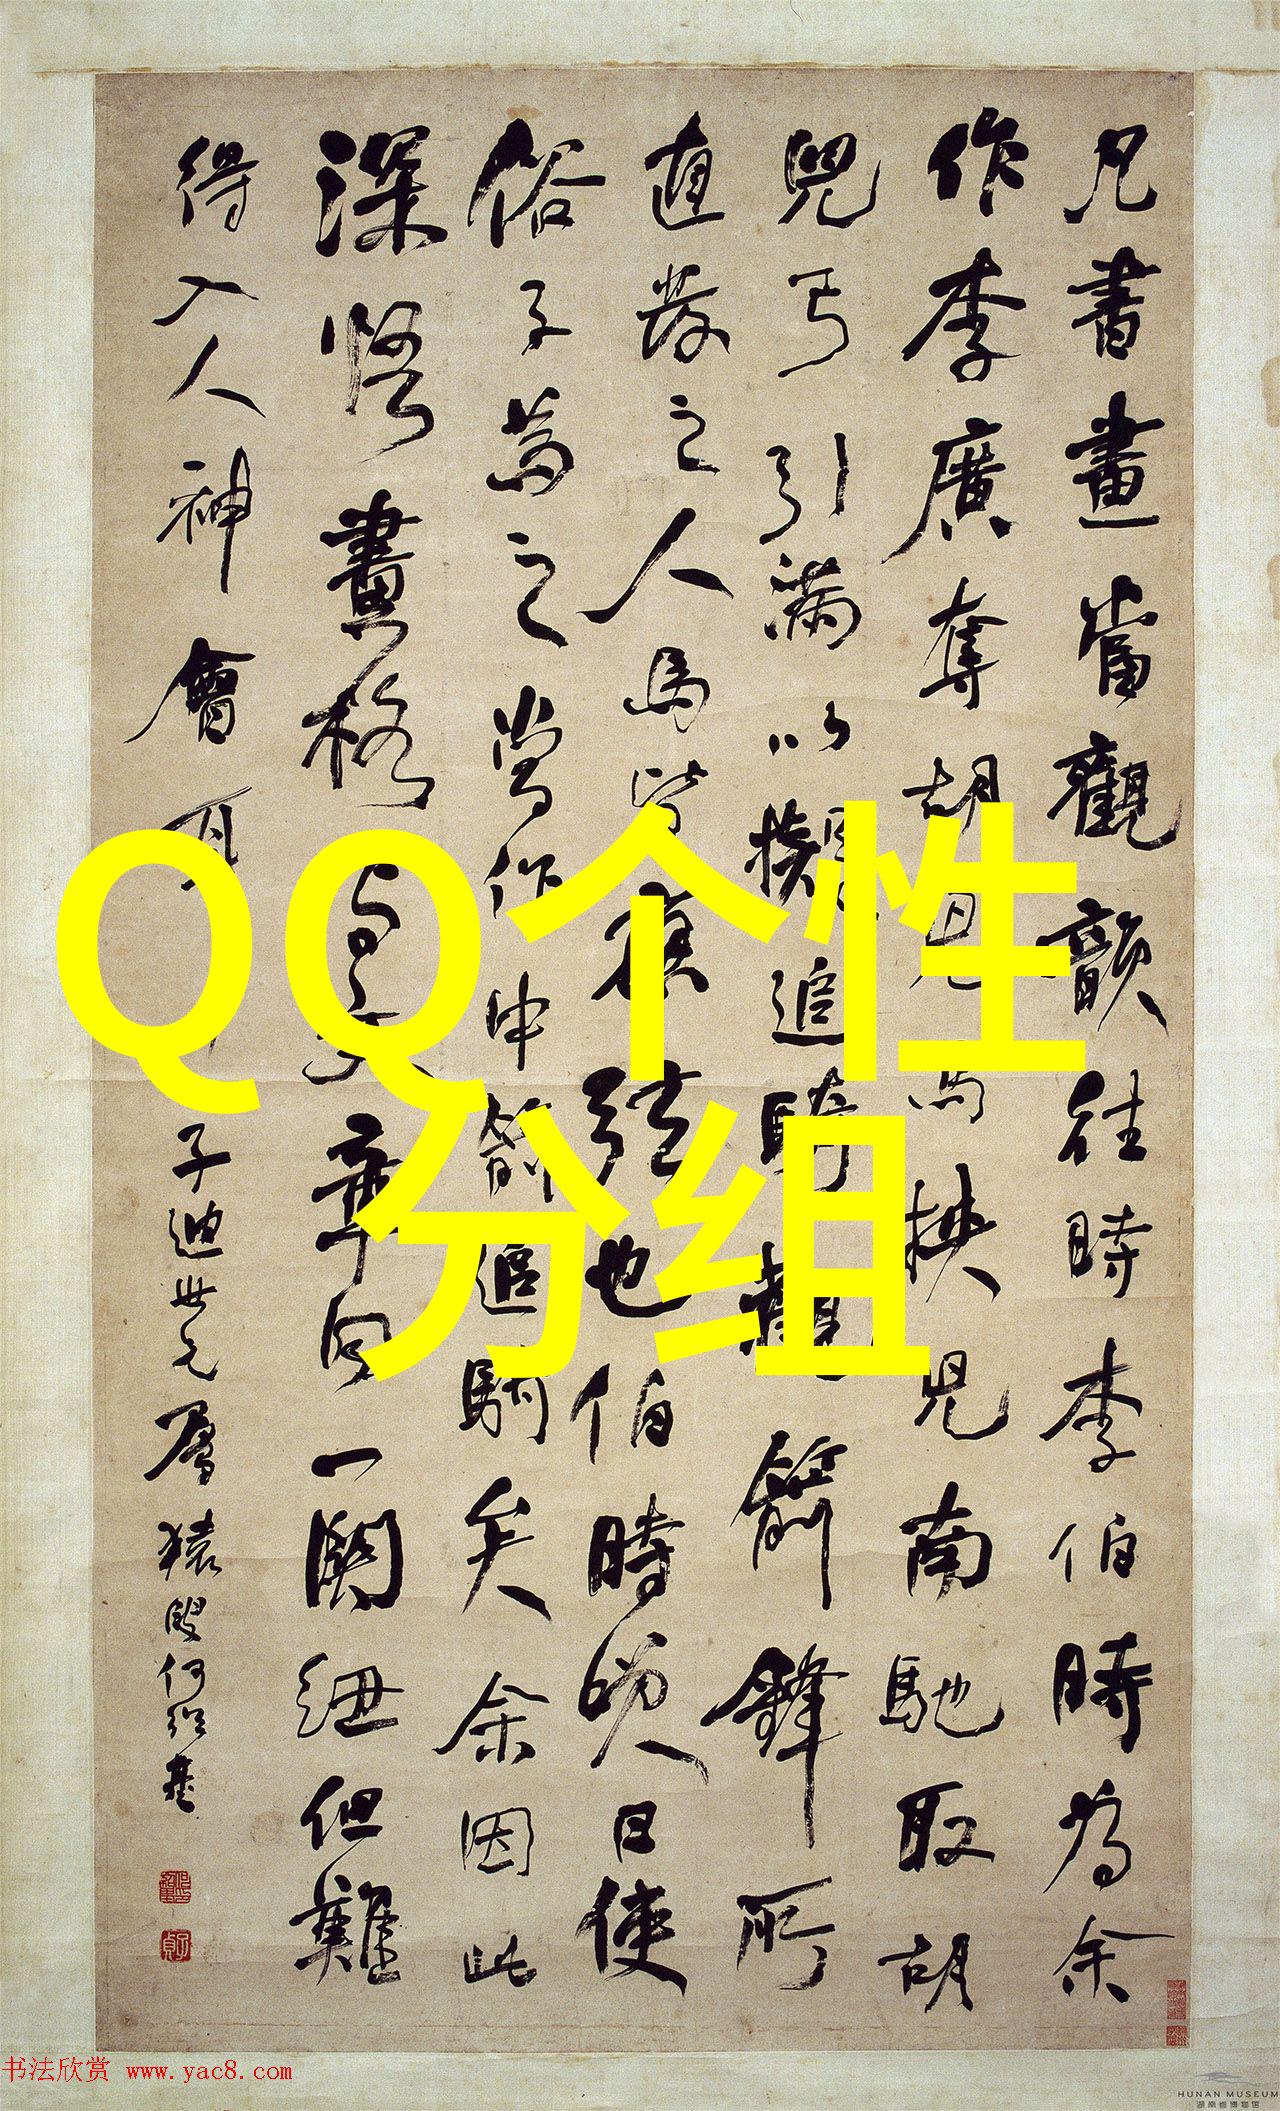 凡書畫當觀韻往時李伯時為余
作李廣奪胡兒馬挾兒南馳取胡
兒弓引滿以擬追騎觀箭鋒所
直發之人馬皆應弦也伯時笑曰使
俗子為之當作中箭追騎矣余因此
深悟畫格與文章同一關紐但難
得入人神會耳
子迪世兄屬 猿叟何紹基
QQ个性
分组
书法欣赏 www.yac8.com
HUNAN MUSEUM
湖南省博物馆